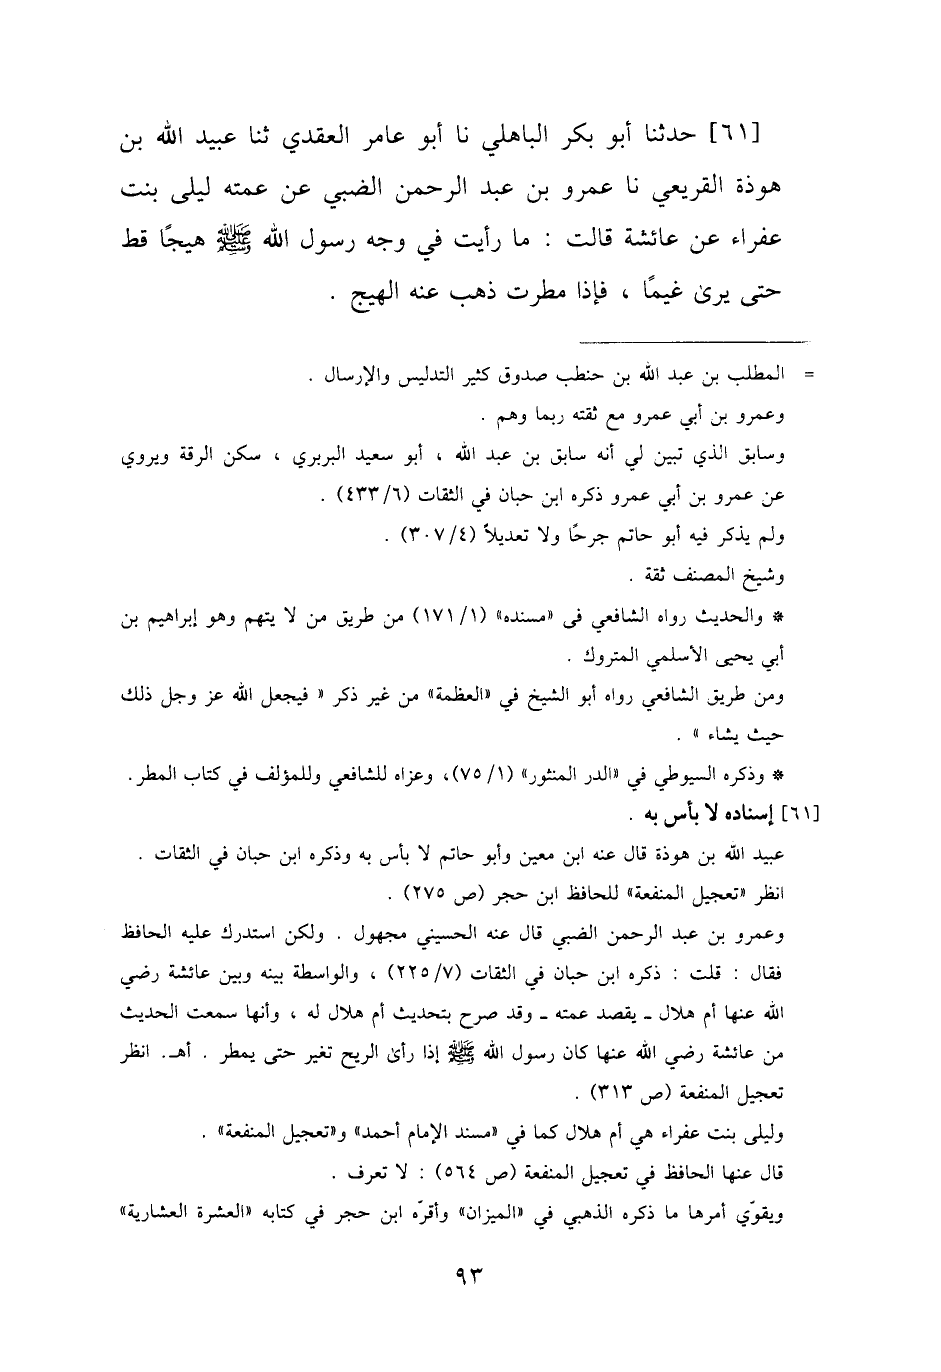 [٦١] حدثنا أبو بكر الباهلي نا أبو عامر العقدي ثنا عبيد الله بن
هوذة القريعي نا عمرو بن عبد الرحمن الضبي عن عمته ليلى بنت
عفراء عن عائشة قالت : ما رأيت في وجه رسول الله ﷺ هيجًا قط
حتى يرىٰ غيمًا ، فإذا مطرت ذهب عنه الهيج .
= المطلب بن عبد الله بن حنطب صدوق كثير التدليس والإرسال .
وعمرو بن أبي عمرو مع ثقته ربما وهم .
وسابق الذي تبين لي أنه سابق بن عبد الله ، أبو سعيد البربري ، سكن الرقة ويروي
عن عمرو بن أبي عمرو ذكره ابن حبان في الثقات (٤٣٣/٦) .
ولم يذكر فيه أبو حاتم جرحًا ولا تعديلاً (٣٠٧/٤) .
وشيخ المصنف ثقة .
* والحديث رواه الشافعي فى «مسنده» (١٧١/١) من طريق من لا يتهم وهو إبراهيم بن
أبي يحيى الأسلمي المتروك .
ومن طريق الشافعي رواه أبو الشيخ في «العظمة» من غير ذكر « فيجعل الله عز وجل ذلك
حيث يشاء » .
* وذكره السيوطي في «الدر المنثور» (٧٥/١)، وعزاه للشافعي وللمؤلف في كتاب المطر.
[٦١] إسناده لا بأس به .
عبيد الله بن هوذة قال عنه ابن معين وأبو حاتم لا بأس به وذكره ابن حبان في الثقات .
انظر «تعجيل المنفعة» للحافظ ابن حجر (ص ٢٧٥) .
وعمرو بن عبد الرحمن الضبي قال عنه الحسيني مجهول . ولكن استدرك عليه الحافظ
فقال : قلت : ذكره ابن حبان في الثقات (٢٢٥/٧) ، والواسطة بينه وبين عائشة رضي
الله عنها أم هلال ـ يقصد عمته ـ وقد صرح بتحديث أم هلال له ، وأنها سمعت الحديث
من عائشة رضي الله عنها كان رسول الله ﷺ إذا رأىٰ الريح تغير حتى يمطر . أهـ. انظر
تعجيل المنفعة (ص ٣١٣) .
وليلى بنت عفراء هي أم هلال كما في «مسند الإمام أحمد» و«تعجيل المنفعة» .
قال عنها الحافظ في تعجيل المنفعة (ص ٥٦٤) : لا تعرف .
ويقوّي أمرها ما ذكره الذهبي في «الميزان» وأقرّه ابن حجر في كتابه «العشرة العشارية»
٩٣